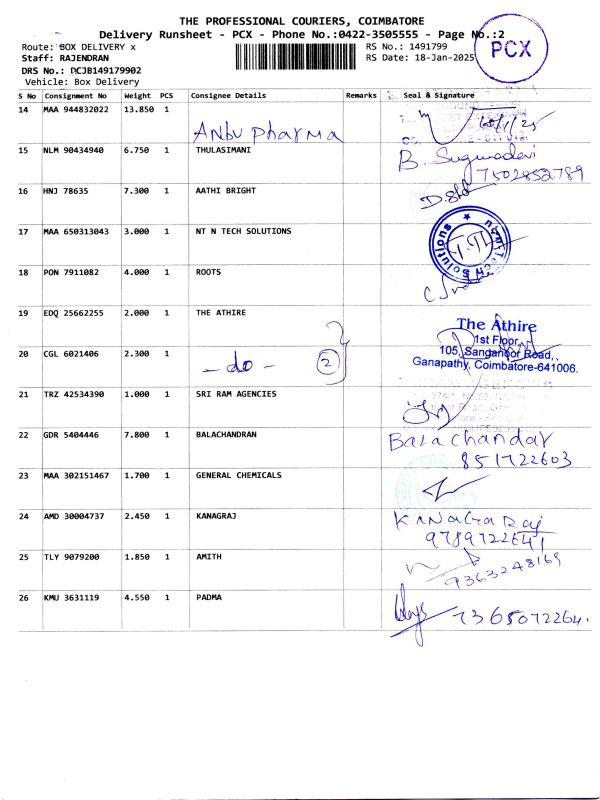 THE PROFESSIONAL COURIERS, COIMBATORE
Delivery Runsheet - PCX - Phone No.:0422-3505555 - Page No.:2
PCX
Route: BOX DELIVERY x
RS No.: 1491799
Staff: RAJENDRAN
RS Date: 18-Jan-2025
DRS No.: PCJB149179902
Vehicle: Box Delivery
S No Consignment No Weight PCS Consignee Details Remarks Seal & Signature
14 MAA 944832022 13.850 1 Anbu Pharma
15 NLM 90434940 6.750 1 THULASIMANI
7502852789
16 HNJ 78635 7.300 1 AATHI BRIGHT
17 MAA 650313043 3.000 1 NT N TECH SOLUTIONS
18 PON 7911082 4.000 1 ROOTS
19 EDQ 25662255 2.000 1 THE ATHIRE
The Athire
1st Floor,
105, Sanganoor Road,
Ganapathy, Coimbatore-641006.
20 CGL 6021406 2.300 1 - do - 2
21 TRZ 42534390 1.000 1 SRI RAM AGENCIES
22 GDR 5404446 7.800 1 BALACHANDRAN
Balachandar
851722603
23 MAA 302151467 1.700 1 GENERAL CHEMICALS
24 AMD 30004737 2.450 1 KANAGRAJ
KANAGARAJ
9789722641
25 TLY 9079200 1.850 1 AMITH
9363248169
26 KMU 3631119 4.550 1 PADMA
7365072264.